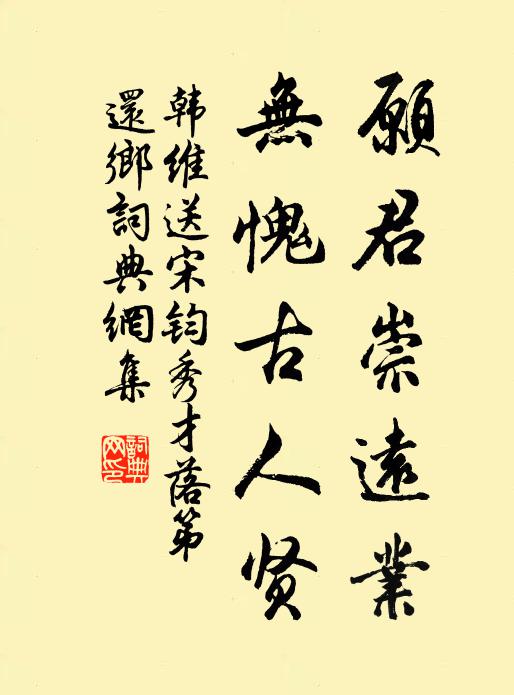 願君崇遠業
無愧古人贤
韩維送宋钧秀才落第
還鄉詞典網集
詞典网印